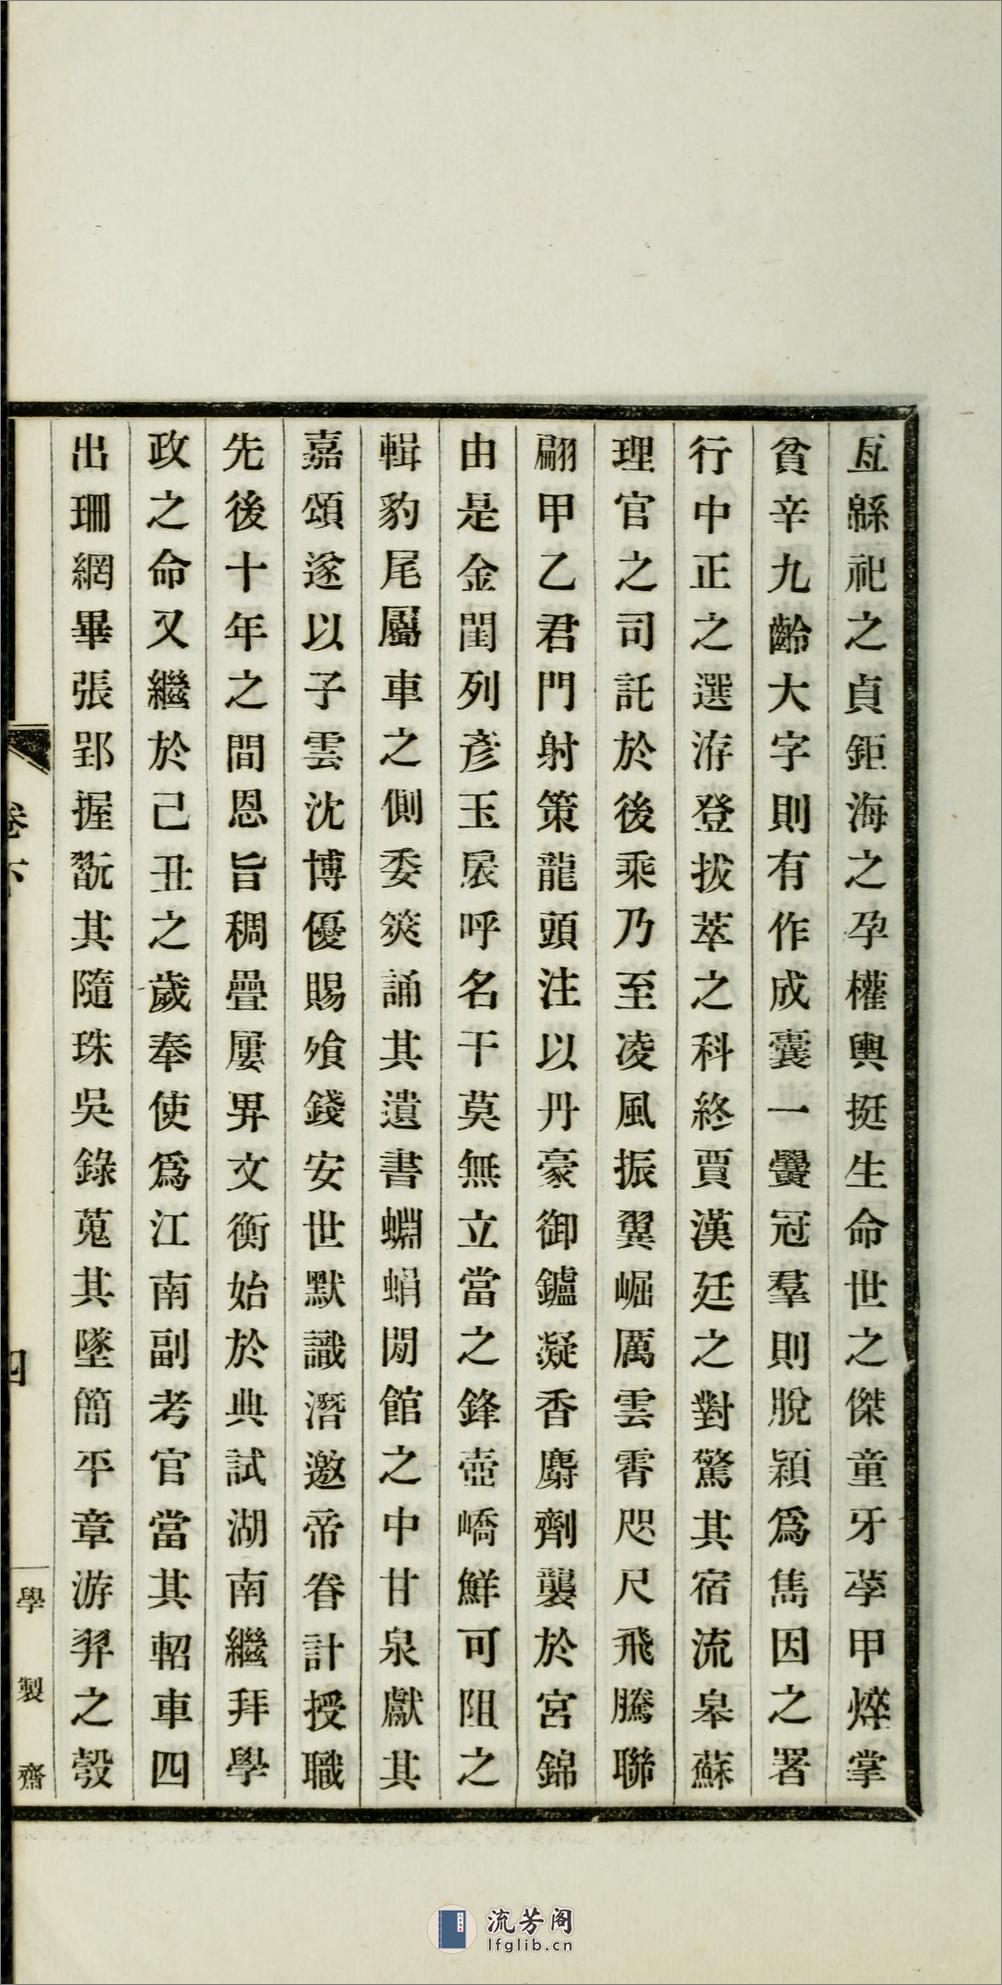 亙緜祀之貞鉅海之孕權輿挺生命世之傑童牙孛甲焠掌
貧辛九齡大字則有作成囊一黌冠羣則脫穎爲雋因之署
行中正之選洊登拔萃之科終賈漢廷之對驚其宿流皋蘇
理官之司託於後乘乃至凌風振翼崛厲雲霄咫尺飛騰聯
翩甲乙君門射策龍頭注以丹豪御鑪凝香麝劑襲於宮錦
由是金閨列彥玉扆呼名干莫無立當之鋒壺嶠鮮可阻之
輯豹尾屬車之側委筴誦其遺書蜵蜎閒館之中甘泉獻其
嘉頌遂以子雲沈博優賜飱錢安世默識潛邀帝眷計授職
先後十年之間恩旨稠疊屢畀文衡始於典試湖南繼拜學
政之命又繼於己丑之歲奉使爲江南副考官當其軺車四
出珊網畢張郢握翫其隨珠吳錄蒐其墜簡平章游羿之彀
卷下
四
學製齋
流芳阁
lfglib.cn